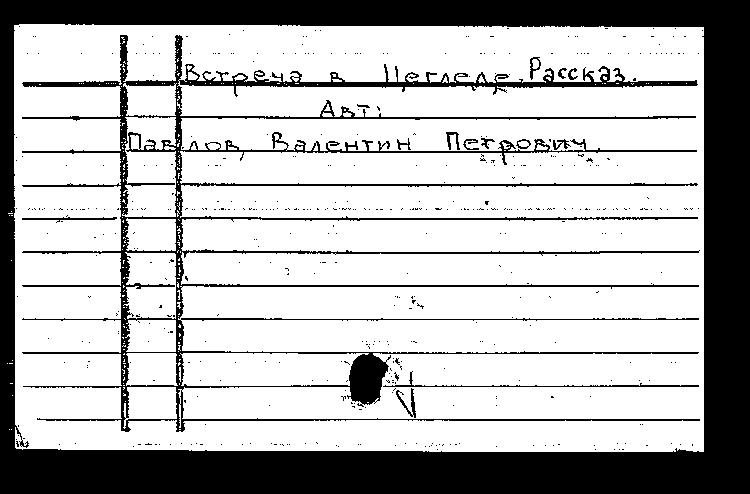 Встреча в Цегледе. Рассказ.
Авт:
Павлов, Валентин Петрович.